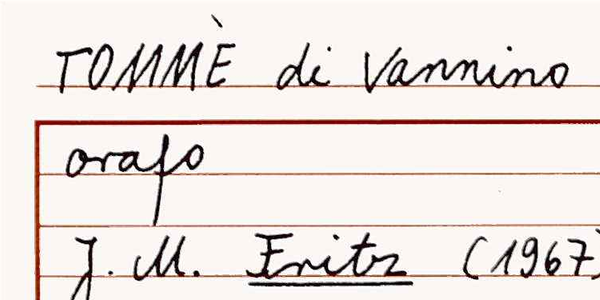 TOMMÈ di Vannino
orafo
J. M. Fritz (1967)